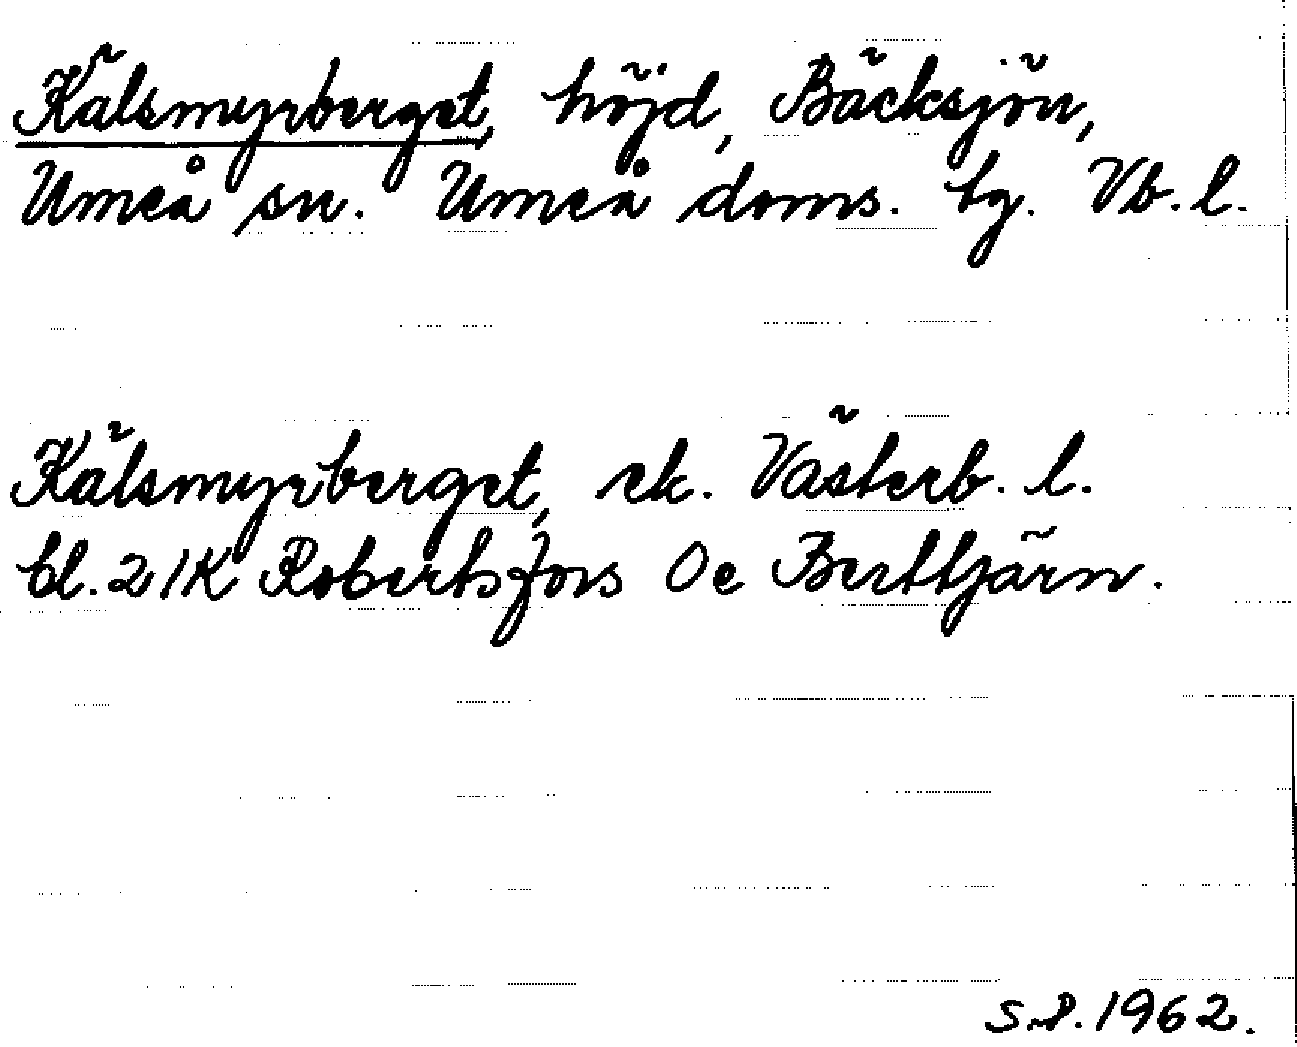 Kälsmyrberget, höjd, Bäcksjön,
Umeå sn. Umeå doms. tg. Vb. l.
Kälsmyrberget, ek. Västerb. l.
bl. 21K Robertsfors Oe Berttjärn.
S.P. 1962.